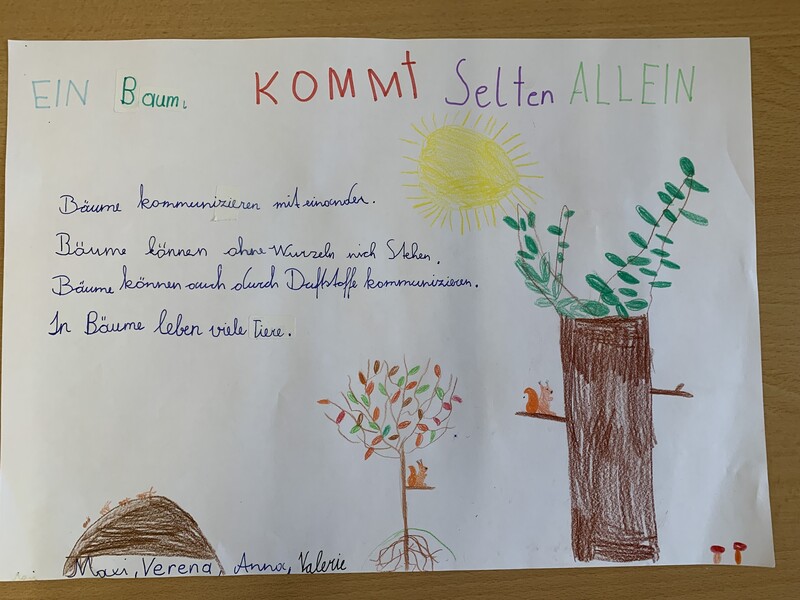 EIN Baum KOMMT Selten ALLEIN
Bäume kommunizieren miteinander.
Bäume können ohne Wurzeln nich Stehen.
Bäume können auch durch Duftstoffe kommunizieren.
In Bäume leben viele Tiere.
Maxi, Verena, Anna, Valerie